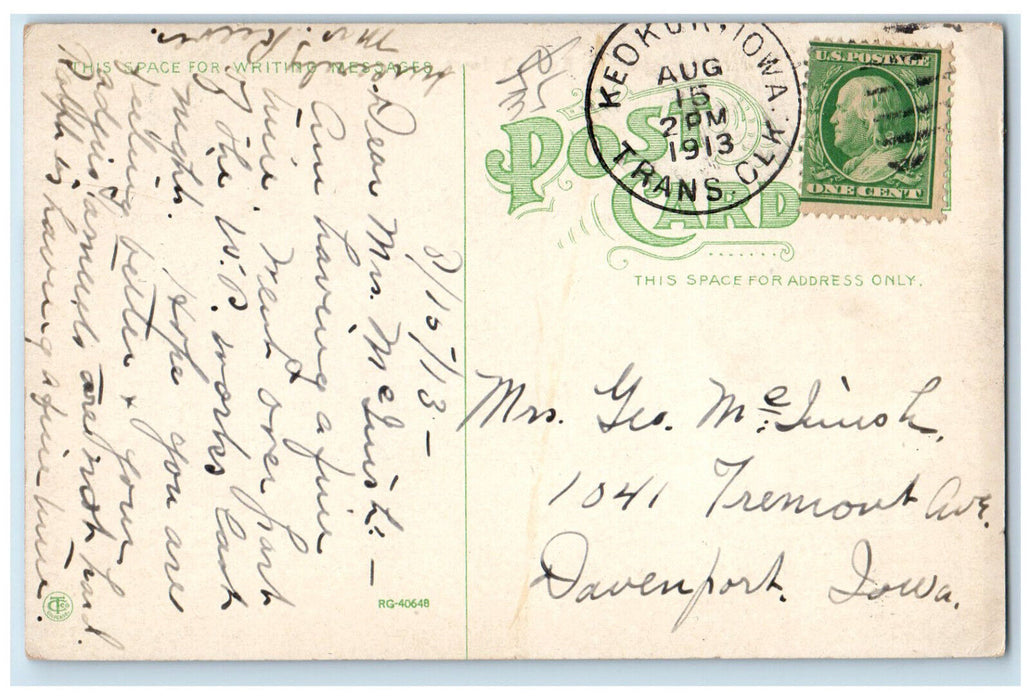 THIS SPACE FOR WRITING MESSAGES
8/15/13 –
Dear Mrs. McLinish: –
Am having a fine
time. Went over part
of the W.P. works last
night. Hope you are
feeling better & your
are not hard.
Ralph is having a fine time.
Mrs.
POST CARD
KEOKUK, IOWA.
AUG
15
2 PM
1913
TRANS. CLK.
U.S. POSTAGE
ONE CENT
THIS SPACE FOR ADDRESS ONLY.
Mrs. Geo. McLinish,
1041 Tremont Ave.
Davenport, Iowa.
RG-40648